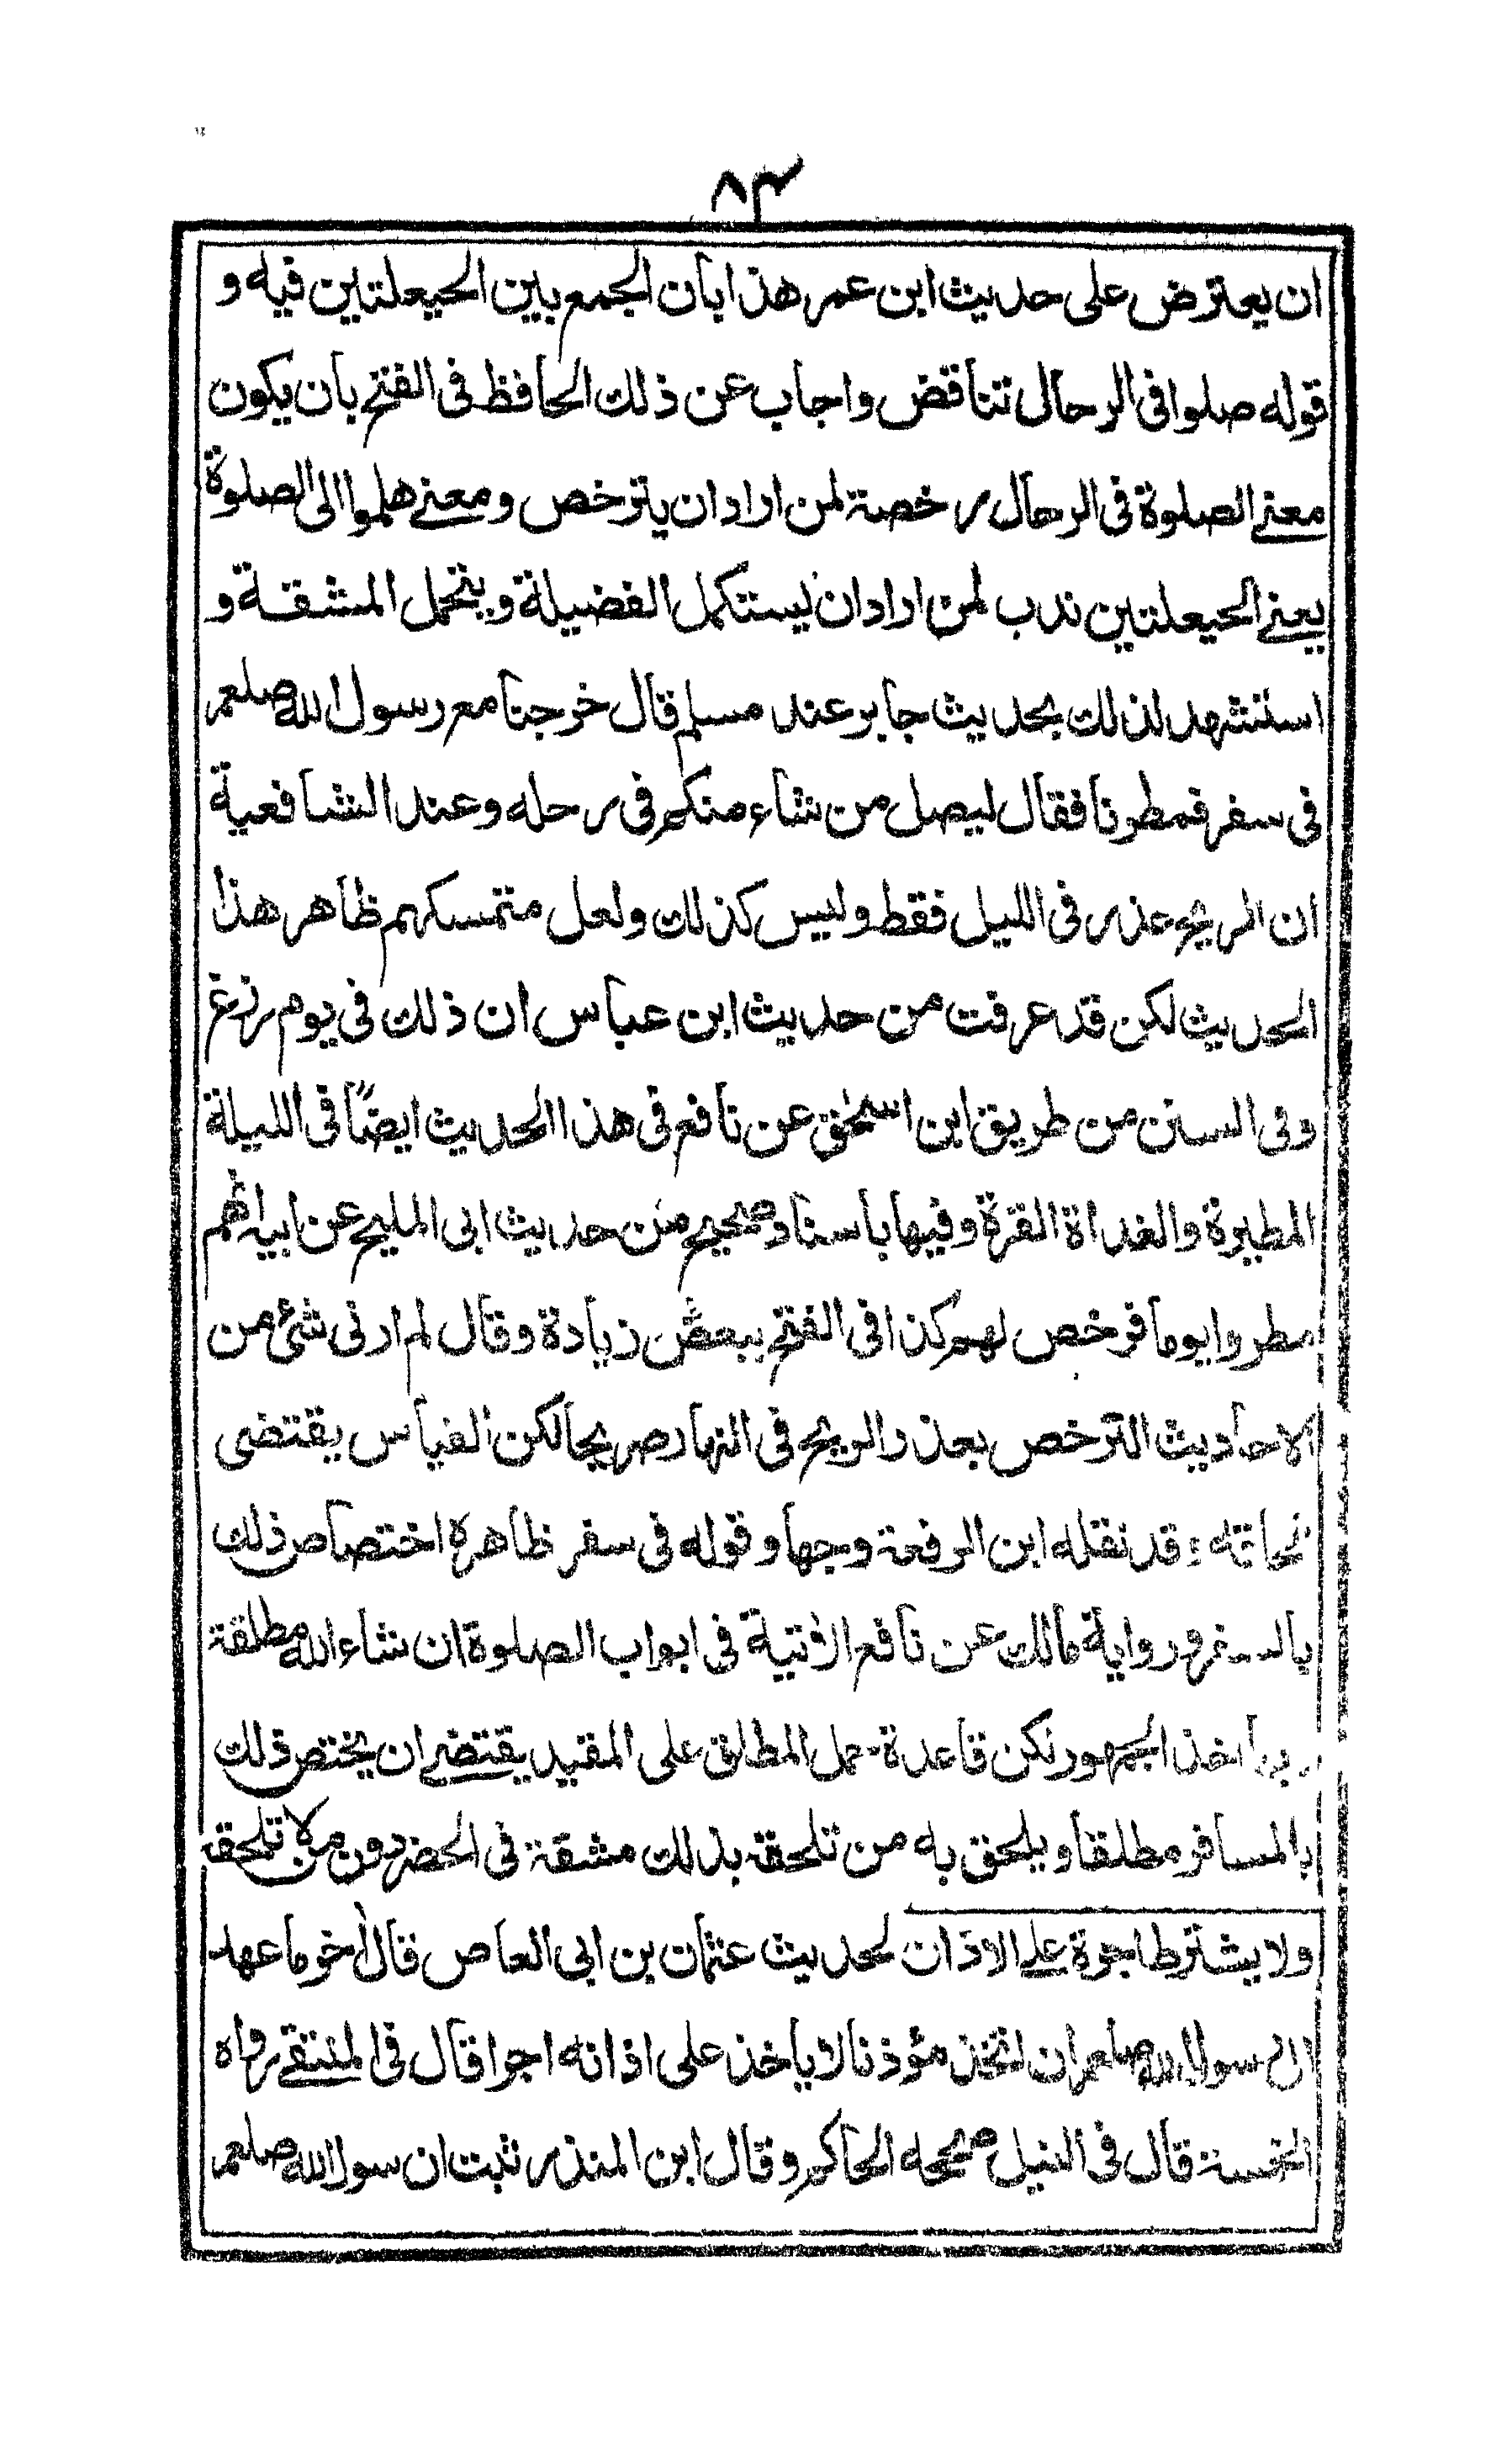 ٨٣
ان يعترض على حديث ابن عمر هذا بان الجمع بين الحيعلتين فيه و
قوله صلوا فى الرحال تناقض واجاب عن ذلك الحافظ فى الفتح بان يكون
معنے الصلوة فى الرحال رخصة لمن اراد ان يترخص ومعنے هلموا الى الصلوة
يعنے الحيعلتين ندب لمن اراد ان يستكمل الفضيلة ويتحمل المشقة و
استشهد لذلك بحديث جابر عند مسلم قال خرجنا مع رسول الله صلعم
فى سفر فمطرنا فقال ليصل من شاء منكم فى رحله وعند الشافعية
ان الريح عذر فى الليل فقط وليس كذلك ولعل متمسكهم ظاهر هذا
الحديث لكن قد عرفت من حديث ابن عباس ان ذلك فى يوم رزغ
وفى السنن من طريق ابن اسحٰق عن نافع فى هذا الحديث ايضًا فى الليلة
المطيرة والغداة القرة وفيها باسناد صحيح من حديث ابى المليح عن ابيه انهم
مطروا يوما فرخص لهم كذا فى الفتح ببعض زيادة وقال لم ار فى شئ من
الاحاديث الترخص بعذر الريح فى النهار صريحا لكن القياس يقتضى
قد نقله ابن الرفعة وجها وقوله فى سفر ظاهره اختصاص ذلك
بالسفر ورواية مالك عن نافع الاٰتية فى ابواب الصلوة ان شاء الله مطلقة
اخذ الجمهور لكن قاعدة حمل المطلق على المقيد يقتضے ان يختص ذلك
بالمسافر مطلقا ويلحق به من تلحقه بذلك مشقة فى الحضر دون من لا تلحقه
ولا يشترط اجرة علے الاذان لحديث عثمان بن ابى العاص قال اٰخر ما عهد
الى رسول الله صلعم ان اتخذ مؤذنا لا ياخذ على اذانه اجرا قال فى المنتقے رواه
الخمسة قال فى النيل صححه الحاكم وقال ابن المنذر ثبت ان رسول الله صلعم